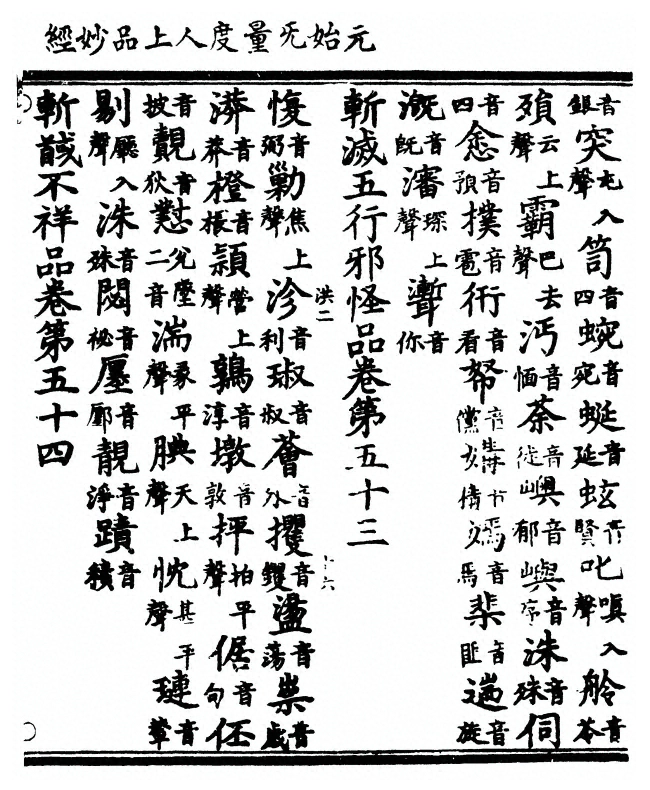 元始无量度人上品妙經
音銀突屯入聲笥音四蜿音宛蜒音延蚿音賢叱嗔入聲舲音苓
殞云上聲霸巴去聲沔音愐荼音徒噢音郁嶼音序洙音殊伺
音四悆音預撲音雹衎音看帑音儻嫣音焉棐音匪遄音旋
溉音旣瀋琛上聲聻音你
斬滅五行邪怪品卷第五十三
洪二
十六
愎音弼勦焦上聲沴音利琡音叔薈音外攫音钁盪音蕩祟音
漭音莽橙音棖潁營上聲鶉音淳墩音敦抨拍平聲倨音句伾
音披覿音狄懟兊墜二音湍彖平聲腆天上聲忱甚平聲璉音輦
剔廳入聲洙音殊閟音祕廛音鄽靚音淨蹟音績
斬馘不祥品卷第五十四